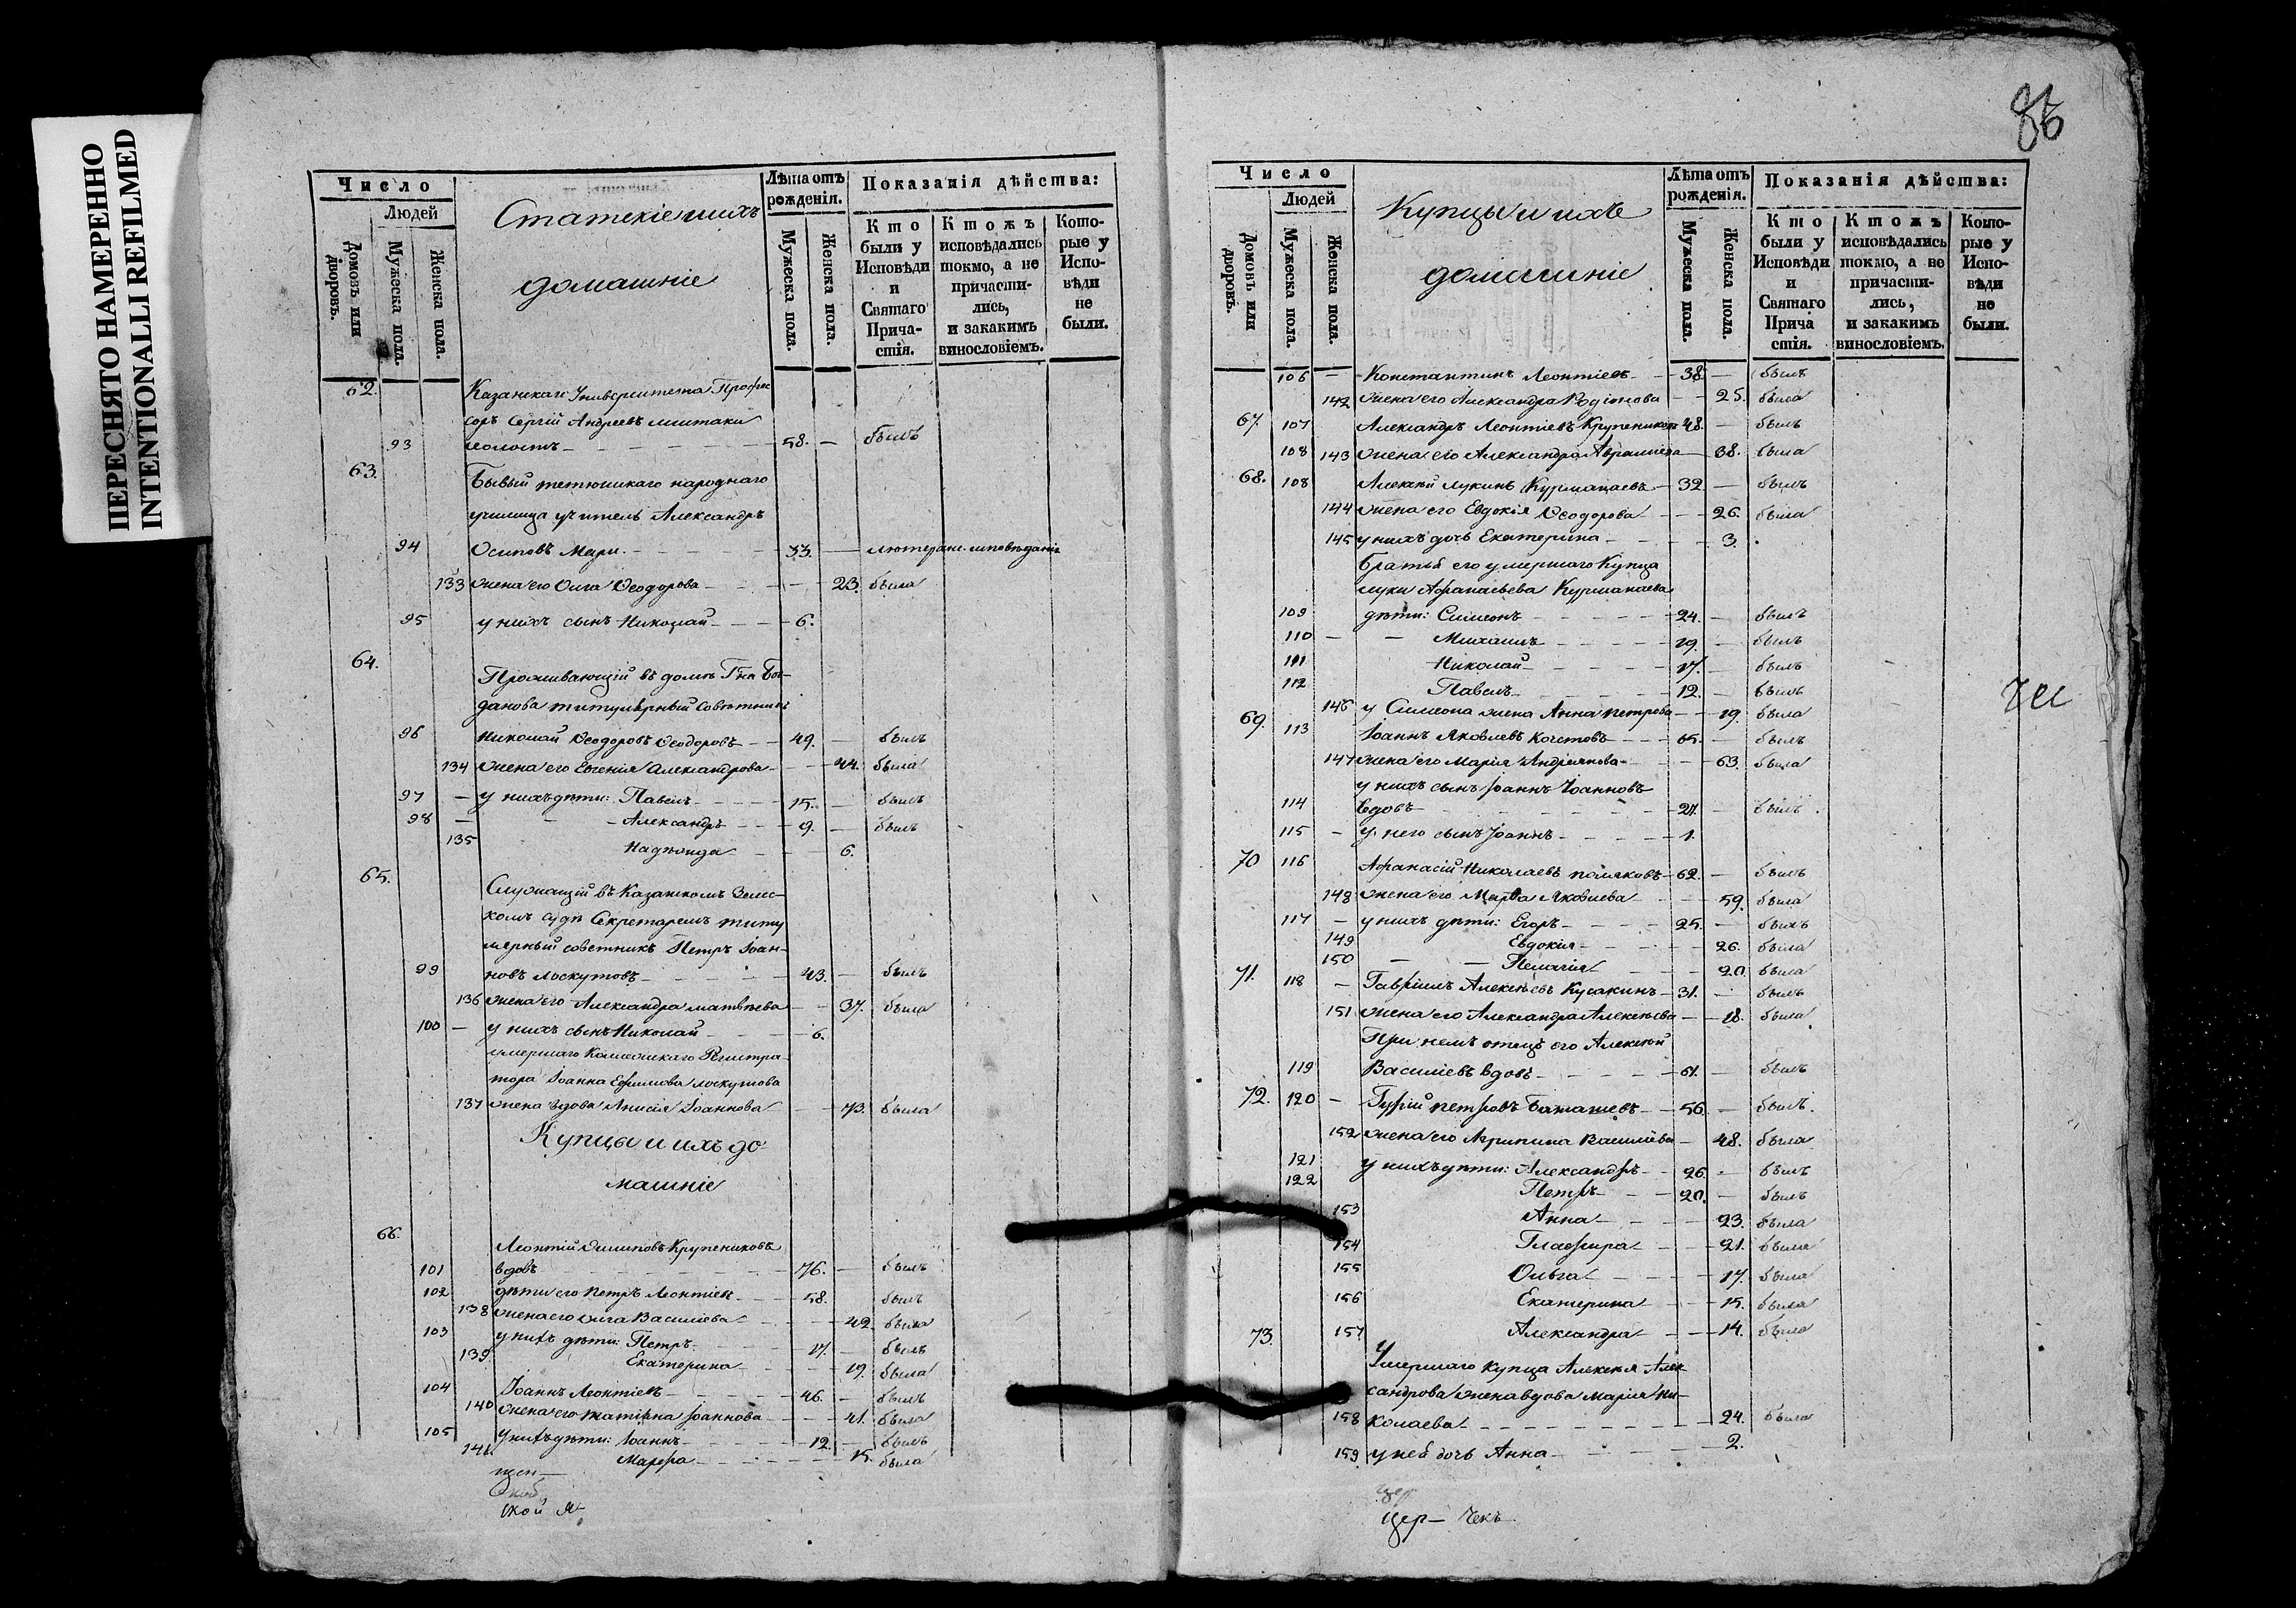 ПЕРЕСНЯТО НАМЕРЕННО
INTENTIONALLI REFILMED
Число
Людей
Домовъ или дворовъ.
Мужеска пола.
Женска пола.
Статскіе и ихъ
домашніе
Лѣта отъ рожденія.
Мужеска пола.
Женска пола.
Показанія дѣйства:
Кто были у Исповѣди и Святаго Причастія.
Ктожъ исповѣдались токмо, а не причастились, и закакимъ винословіемъ.
Которые у Исповѣди не были.
62. Казанскаго Университета Профес
соръ Сергій Андреевъ
93 58. — былъ
63. Бывый тетюшскаго народнаго
училища учитель Александръ
94 Осиповъ Мари 33. — лютеранс. исповѣданія
133 жена его Олга Ѳеодорова 23. была
95 у нихъ сынъ Николай 6.
64. Проживающій въ домѣ Гна Бог-
данова титулярный Совѣтникъ
96 Николай Ѳеодоровъ Ѳеодоровъ 49. — былъ
134 жена его Евгенія Александрова 44. была
97 — у нихъ дѣти: Павелъ 15. — былъ
98 — Александръ 9. — былъ
135 Надежда 6.
65. Служащій въ Казанскомъ Земс-
комъ судѣ Секретаремъ титу
лярный советникъ Петръ Іоан-
99 новъ Лоскутовъ 43. — былъ
136 жена его Александра Матвѣева 37. была
100 — у нихъ сынъ Николай 6.
умершаго Колежскаго Регистра
тора Іоанна Ефимова Лоскутова
137 жена вдова Анисія Іоаннова 73. была
Купцы и ихъ до
машніе
66. Леонтій Филиповъ Крупениковъ
101 вдовъ 76. — былъ
102 дѣти его Петръ Леонтіевъ 58. былъ
138 жена его Олга Василіева 42. была
103 у нихъ дѣти: Петръ 17. — былъ
139. Екатерина 19. была
104 Іоаннъ Леонтіевъ 46. — былъ
140 жена его Татіана Іоаннова 41. была
105 у нихъ дѣти: Іоаннъ 12. — былъ
141. Марфа 15. была
кой
86
Число
Людей
Домовъ или дворовъ.
Мужеска пола.
Женска пола.
Купцы и ихъ
домашніе
Лѣта отъ рожденія.
Мужеска пола.
Женска пола.
Показанія дѣйства:
Кто были у Исповѣди и Святаго Прича стія.
Ктожъ исповѣдались токмо, а не причастились, и закакимъ винословіемъ.
Которые у Исповѣди не были.
106 — Константинъ Леонтіевъ 38. — былъ
142 жена его Александра Родіонова 25. была
67. 107 Александръ Леонтіевъ Крупениковъ 48. — былъ
108 143 жена его Александра Авраміева 38. была
68. 108 Алексѣй Лукинъ Курманаевъ 32. — былъ
144 жена его Евдокія Ѳеодорова 26. была
145 у нихъ дочь Екатерина 3.
Братья его умершаго Купца
Луки Афанасьева Курманаева
109 дѣти: Симеонъ 24. — былъ
110 — Михаилъ 19. — былъ
111 Николай 17. — былъ
112 Павелъ 12. — былъ
146 у Симеона жена Анна Петрова 19. была
69. 113 Іоаннъ Яковлевъ Кочетовъ 65. — былъ
147 жена его Марія Андреянова 63. была
у нихъ сынъ Іоаннъ Іоанновъ
114 вдовъ 27. — былъ
115 — у него сынъ Іоаннъ 1.
70 116 Афанасій Николаевъ Поляковъ 62. — былъ
148 жена его Марѳа Яковлева 59. была
117 — у нихъ дѣти: Егоръ 25. — былъ
149 Евдокія 26. была
150 Пелагія 20. была
71. 118 — Гавріилъ Алексѣевъ Кусакинъ 31. — былъ
151 жена его Александра Алексѣева 18. была
При немъ отецъ его Алексѣй
119 Василіевъ вдовъ 61. — былъ
72. 120 — Гурій Петровъ Баташевъ 56. — былъ.
152 жена его Агрипина Василіева 48. была
121 у нихъ дѣти: Александръ 26. — былъ
122 Петръ 20. — былъ
153 Анна 23. была
154 Глафира 21. была
155 Ольга 17. была
156 Екатерина 15. была
157 Александра 14. была
73. Умершаго Купца Алексѣя Алек-
сандрова жена вдова Марія Ни-
158 колаева 24. была
159 у ней дочь Анна 2.
Цер—